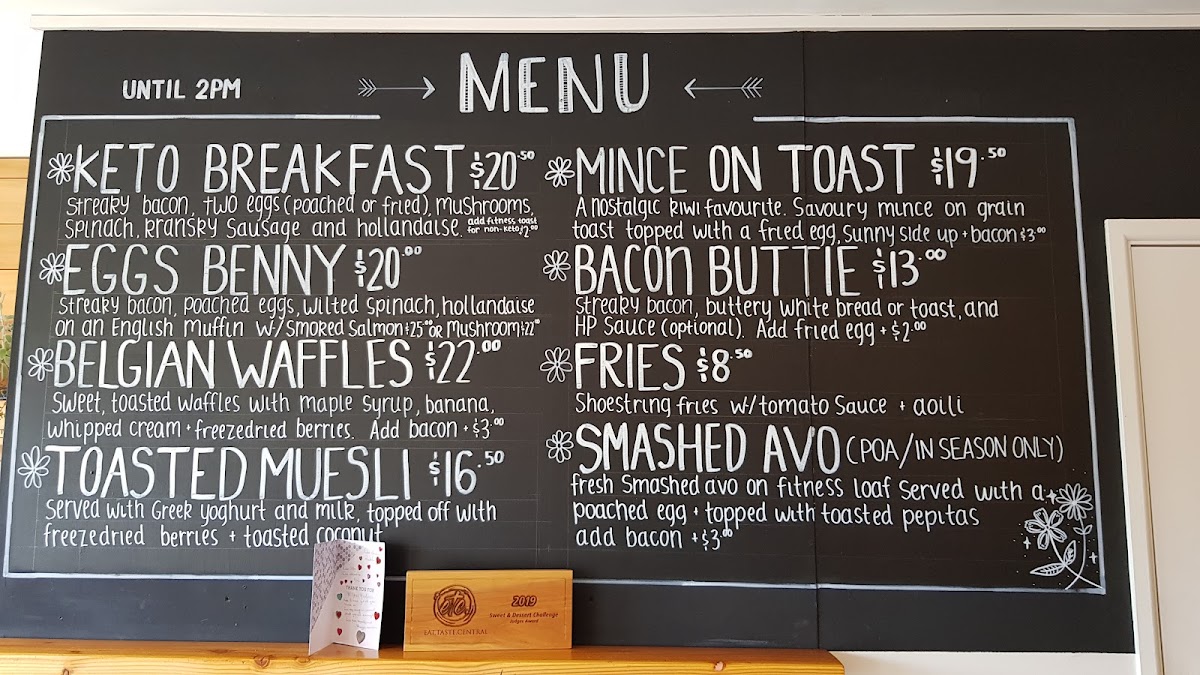 UNTIL 2PM
MENU
KETO BREAKFAST $20.50
Streaky bacon, two eggs (poached or fried), mushrooms,
spinach, kransky sausage and hollandaise. add fitness toast for non-keto $2.00
EGGS BENNY $20.00
Streaky bacon, poached eggs, wilted spinach, hollandaise
on an English muffin w/ smoked salmon $25.00 or mushroom $22.00
BELGIAN WAFFLES $22.00
Sweet, toasted waffles with maple syrup, banana,
whipped cream + freezedried berries. Add bacon + $3.00
TOASTED MUESLI $16.50
Served with Greek yoghurt and milk, topped off with
freezedried berries + toasted coconut
MINCE ON TOAST $19.50
A nostalgic kiwi favourite. Savoury mince on grain
toast topped with a fried egg, sunny side up + bacon $3.00
BACON BUTTIE $13.00
Streaky bacon, buttery white bread or toast, and
HP Sauce (optional). Add fried egg + $2.00
FRIES $8.50
Shoestring fries w/ tomato sauce + aoili
SMASHED AVO (POA/IN SEASON ONLY)
fresh smashed avo on fitness loaf served with a
poached egg + topped with toasted pepitas
add bacon + $3.00
THANK YOU FOR
EATTASTE CENTRAL
2019
Sweet & Dessert Challenge
Judges Award